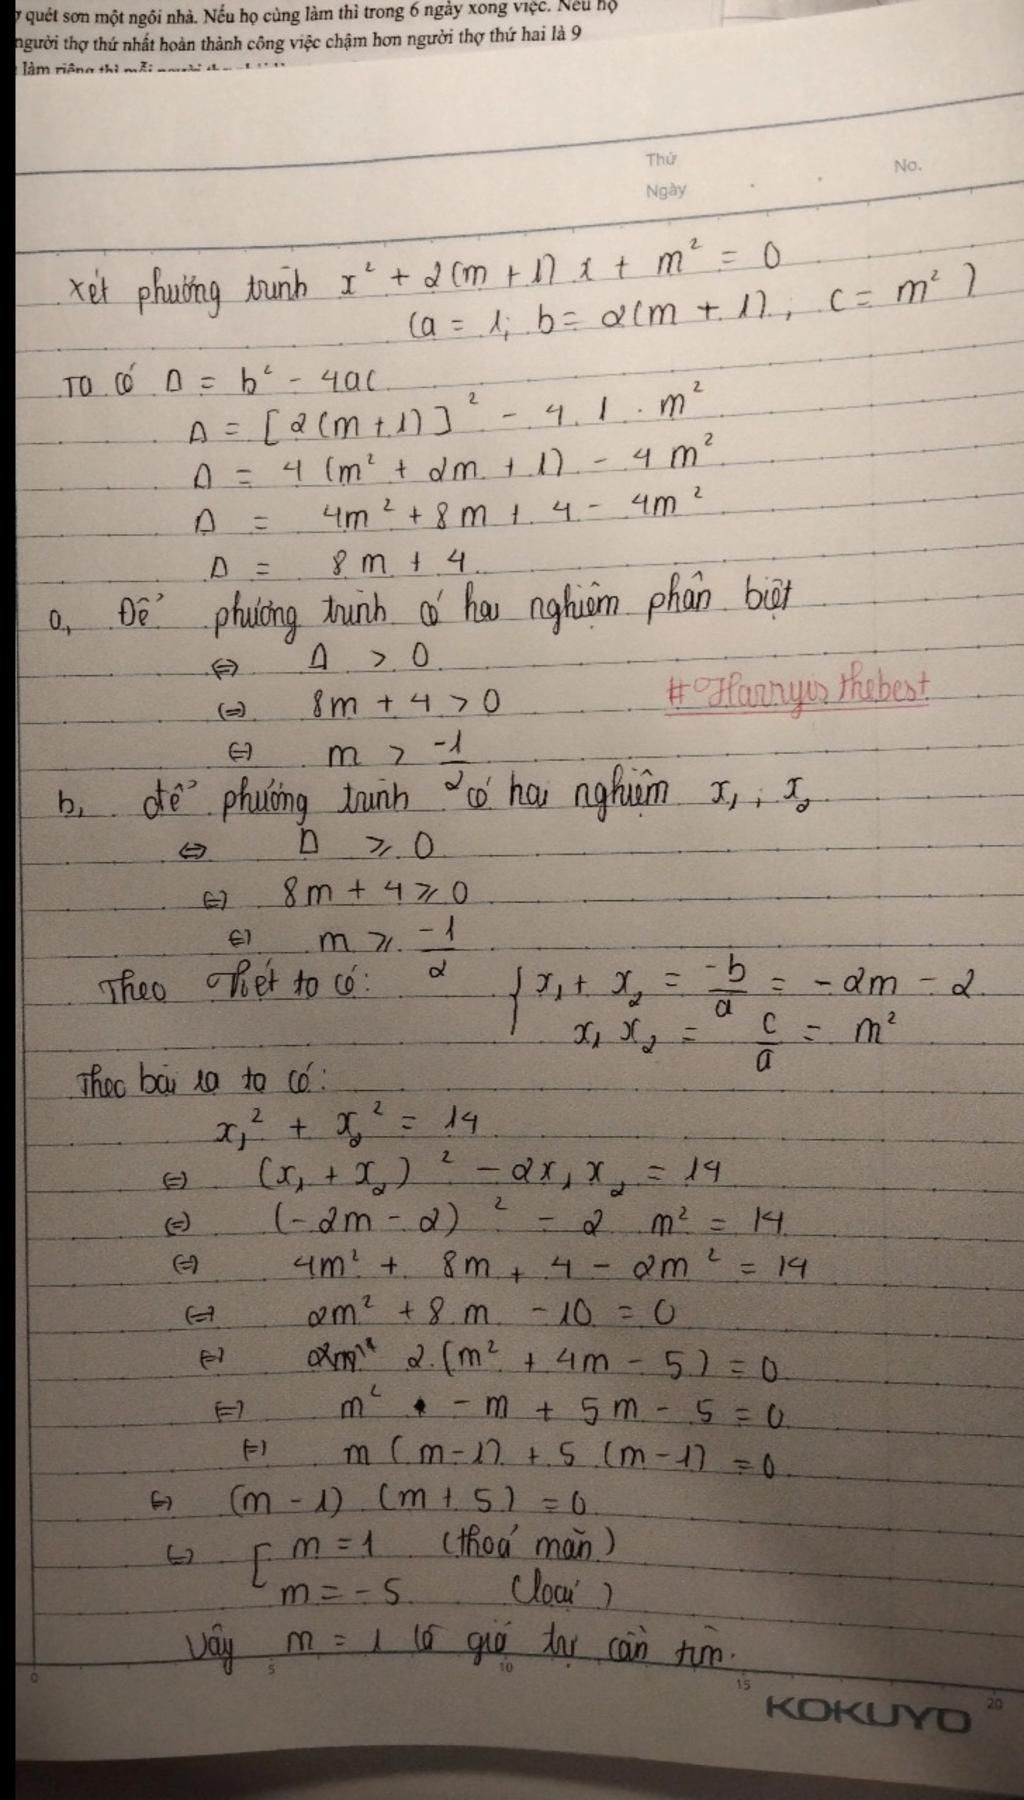 quét sơn một ngôi nhà. Nếu họ cùng làm thì trong 6 ngày xong việc. Nếu họ
người thợ thứ nhất hoàn thành công việc chậm hơn người thợ thứ hai là 9
làm riêng thì mỗi người thợ
Thứ
No.
Ngày
Xét phương trình x² + 2(m + 1) x + m² = 0
(a = 1; b = 2(m + 1); c = m²)
Ta có Δ = b² - 4ac
Δ = [2(m+1)]² - 4.1.m²
Δ = 4 (m² + 2m + 1) - 4m²
Δ = 4m² + 8m + 4 - 4m²
Δ = 8m + 4
a, Để phương trình có hai nghiệm phân biệt
⇔ Δ > 0
⇔ 8m + 4 > 0
#Harryisthebest
⇔ m > -1/2
b, để phương trình có hai nghiệm x₁, x₂
⇔ Δ ⩾ 0
⇔ 8m + 4 ⩾ 0
⇔ m ⩾ -1/2
Theo Viét ta có: { x₁ + x₂ = -b/a = -2m - 2
x₁ x₂ = c/a = m²
Theo bài ra ta có:
x₁² + x₂² = 14
⇔ (x₁ + x₂)² - 2x₁x₂ = 14
⇔ (-2m - 2)² - 2 m² = 14
⇔ 4m² + 8m + 4 - 2m² = 14
⇔ 2m² + 8m - 10 = 0
⇔ 2.(m² + 4m - 5) = 0
⇔ m² - m + 5m - 5 = 0
⇔ m (m-1) + 5 (m-1) = 0
⇔ (m - 1) (m + 5) = 0
⇔ [ m = 1 (thoả mãn)
m = -5 (loại)
Vậy m = 1 là giá trị cần tìm.
0 5 10 15 20
KOKUYO